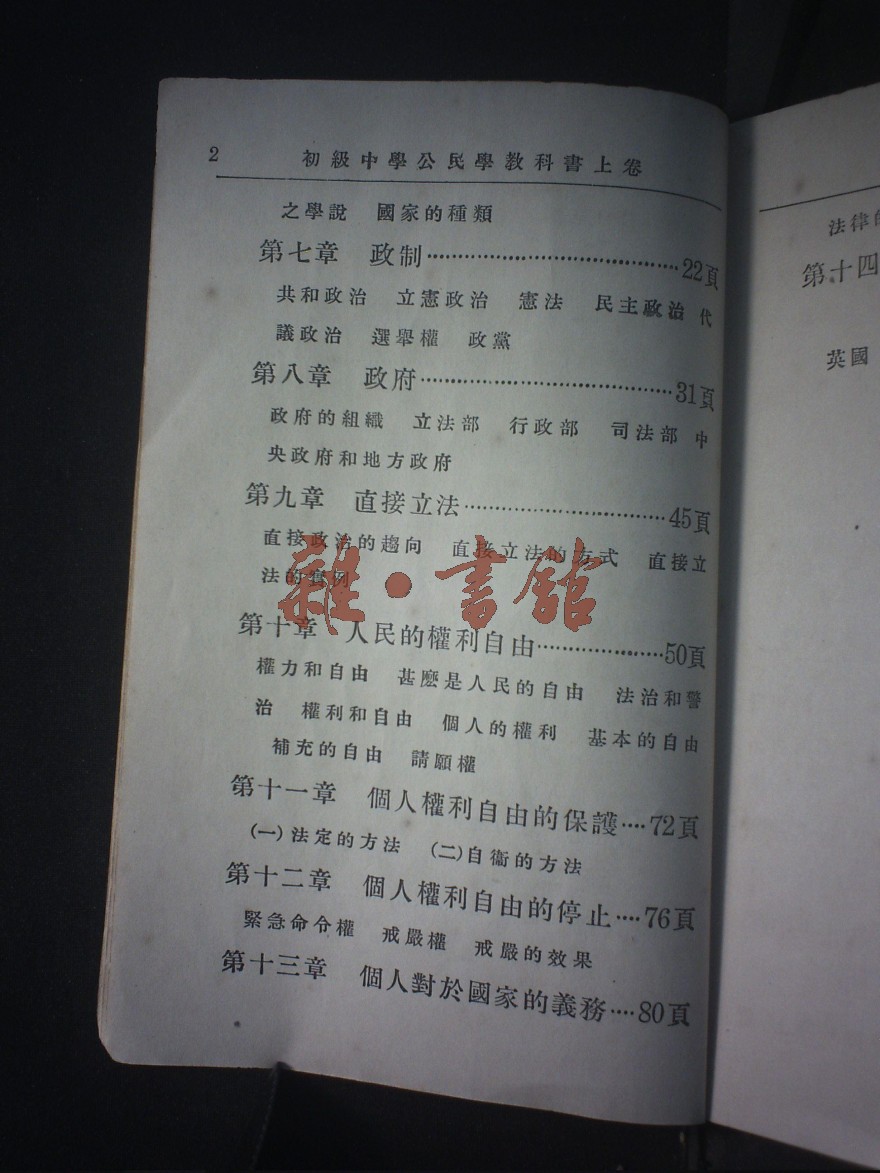 2 初級中學公民學教科書上卷
之學說 國家的種類
第七章 政制……………………………22頁
共和政治 立憲政治 憲法 民主政治 代
議政治 選舉權 政黨
第八章 政府……………………………31頁
政府的組織 立法部 行政部 司法部 中
央政府和地方政府
第九章 直接立法………………………45頁
直接政治的趨向 直接立法的方式 直接立
法的實例
雜·書館
第十章 人民的權利自由………………50頁
權力和自由 甚麽是人民的自由 法治和警
治 權利和自由 個人的權利 基本的自由
補充的自由 請願權
第十一章 個人權利自由的保護….72頁
(一)法定的方法 (二)自衞的方法
第十二章 個人權利自由的停止….76頁
緊急命令權 戒嚴權 戒嚴的效果
第十三章 個人對於國家的義務….80頁
法律的
第十四
英國